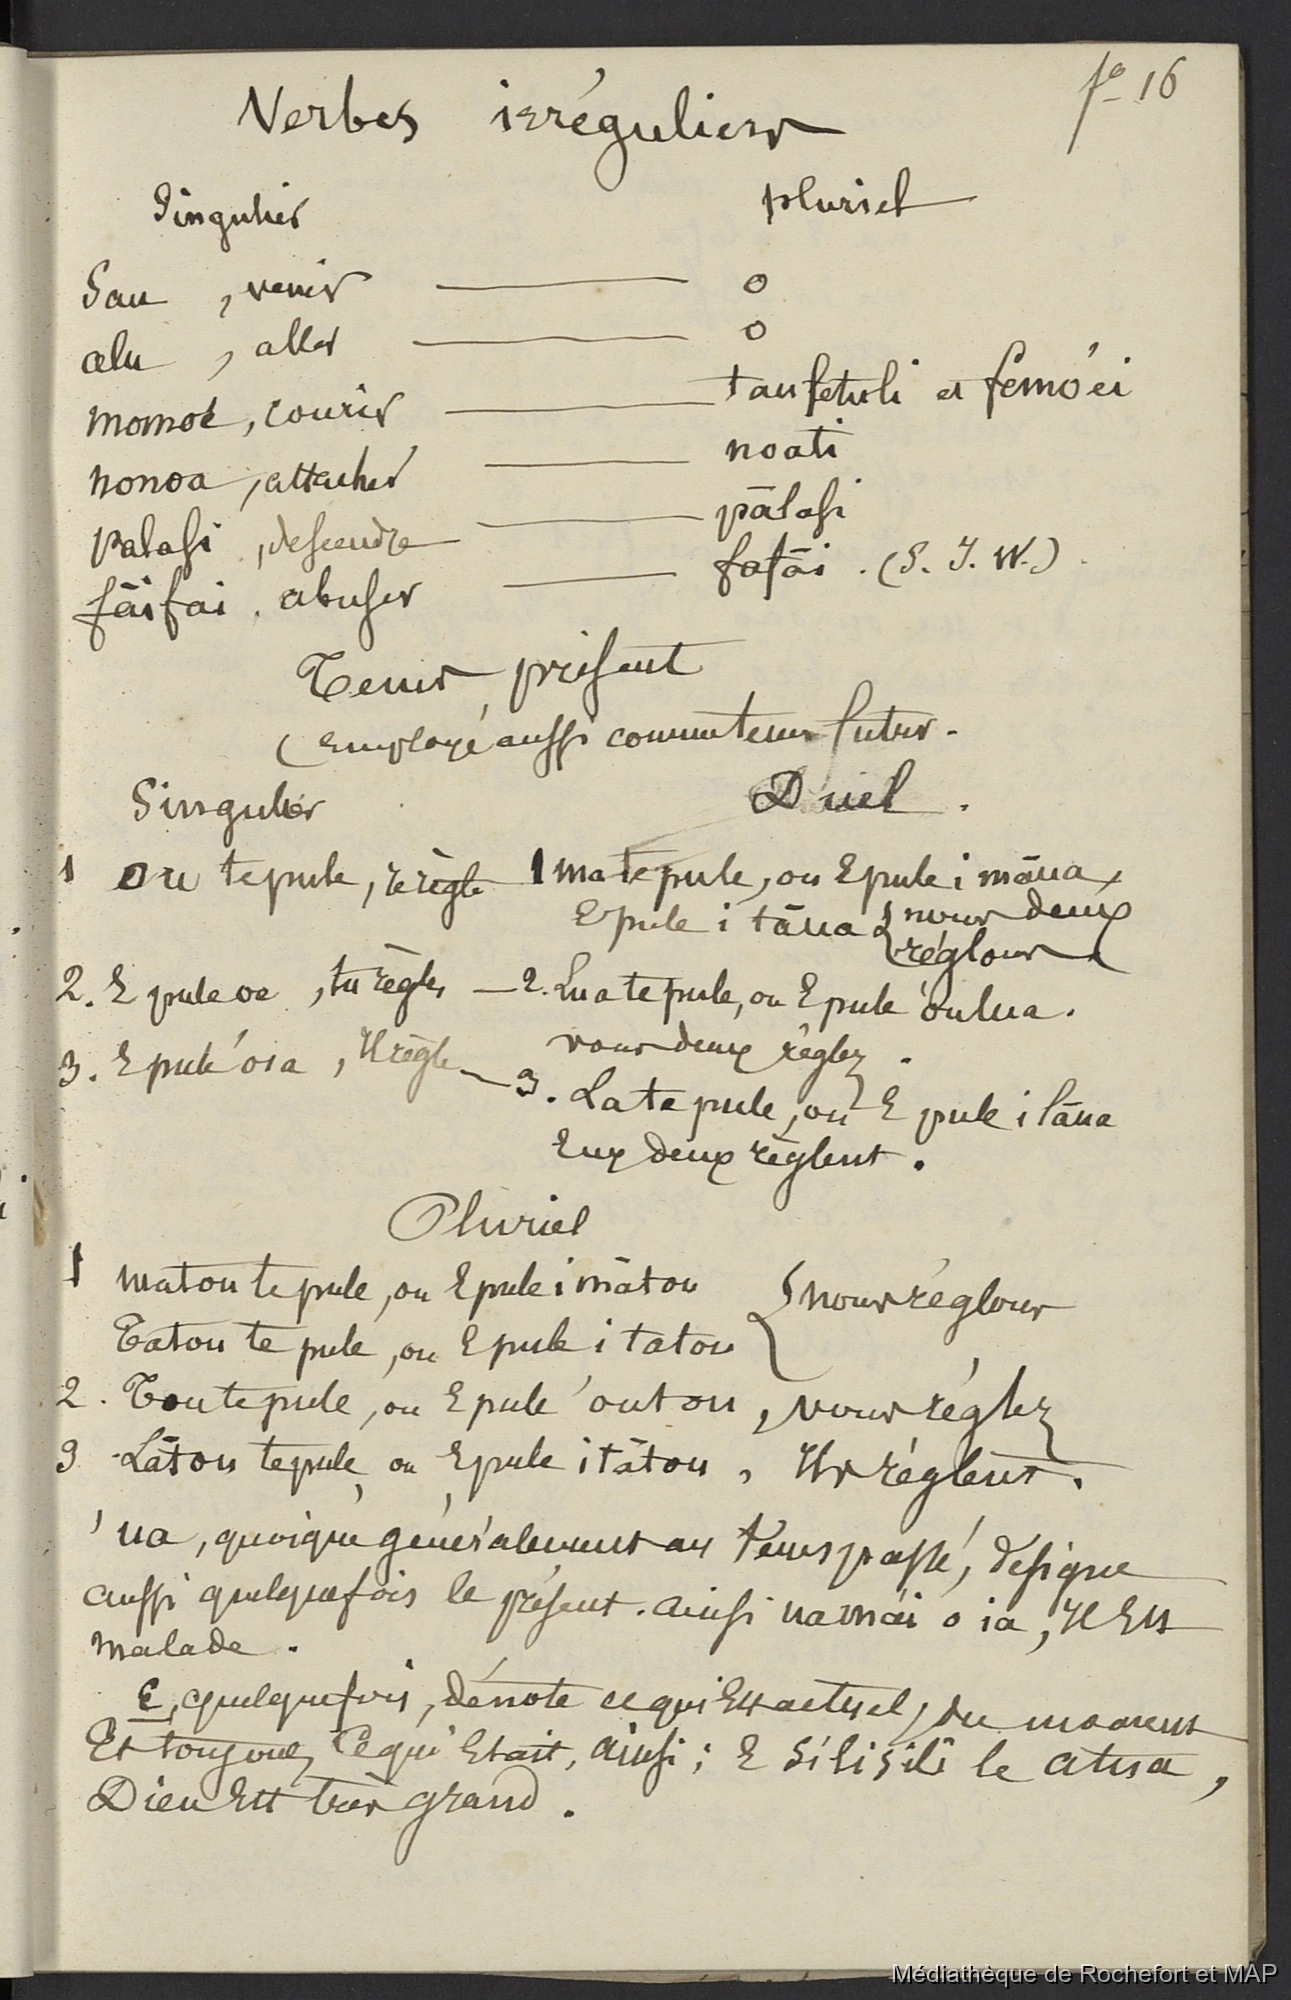 fo 16
Verbes irréguliers
Singulier pluriel
Sau, venir — o
alu, aller — o
momoé, courir — taufetuli et femo'ei
nonoa, attacher — noati
palasi, descendre — pālasi
fāifai, abuser — fafāi. (S. J. W.)
Tems présent
(employé aussi comme tems futur.
Singulier Duel.
1 ou te pule, je règle — 1 ma te pule, ou E pule i māua,
E pule i tāua { nous deux
réglons
2. E pule oe, tu règles — 2. Lua te pule, ou E pule 'oulua.
vous deux réglez.
3. E pule 'oia, Il règle — 3. La te pule, ou E pule i lāua
Eux deux règlent.
Pluriel
1 matou te pule, ou E pule i mātou { nous réglons
Tatou te pule, ou E pule i tatou
2. Tou te pule, ou E pule 'outou, vous réglez
3 Lātou te pule, ou E pule i tātou, Ils règlent.
'ua, quoique généralement au tems passé, désigne
aussi quelquefois le présent. ainsi ua mái o ia, Il Est
malade.
E, quelquefois, dénote ce qui Est actuel, du moment
Et toujours, Ce qui Etait, ainsi; E silisili le atua,
Dieu Est très grand.
Médiathèque de Rochefort et MAP